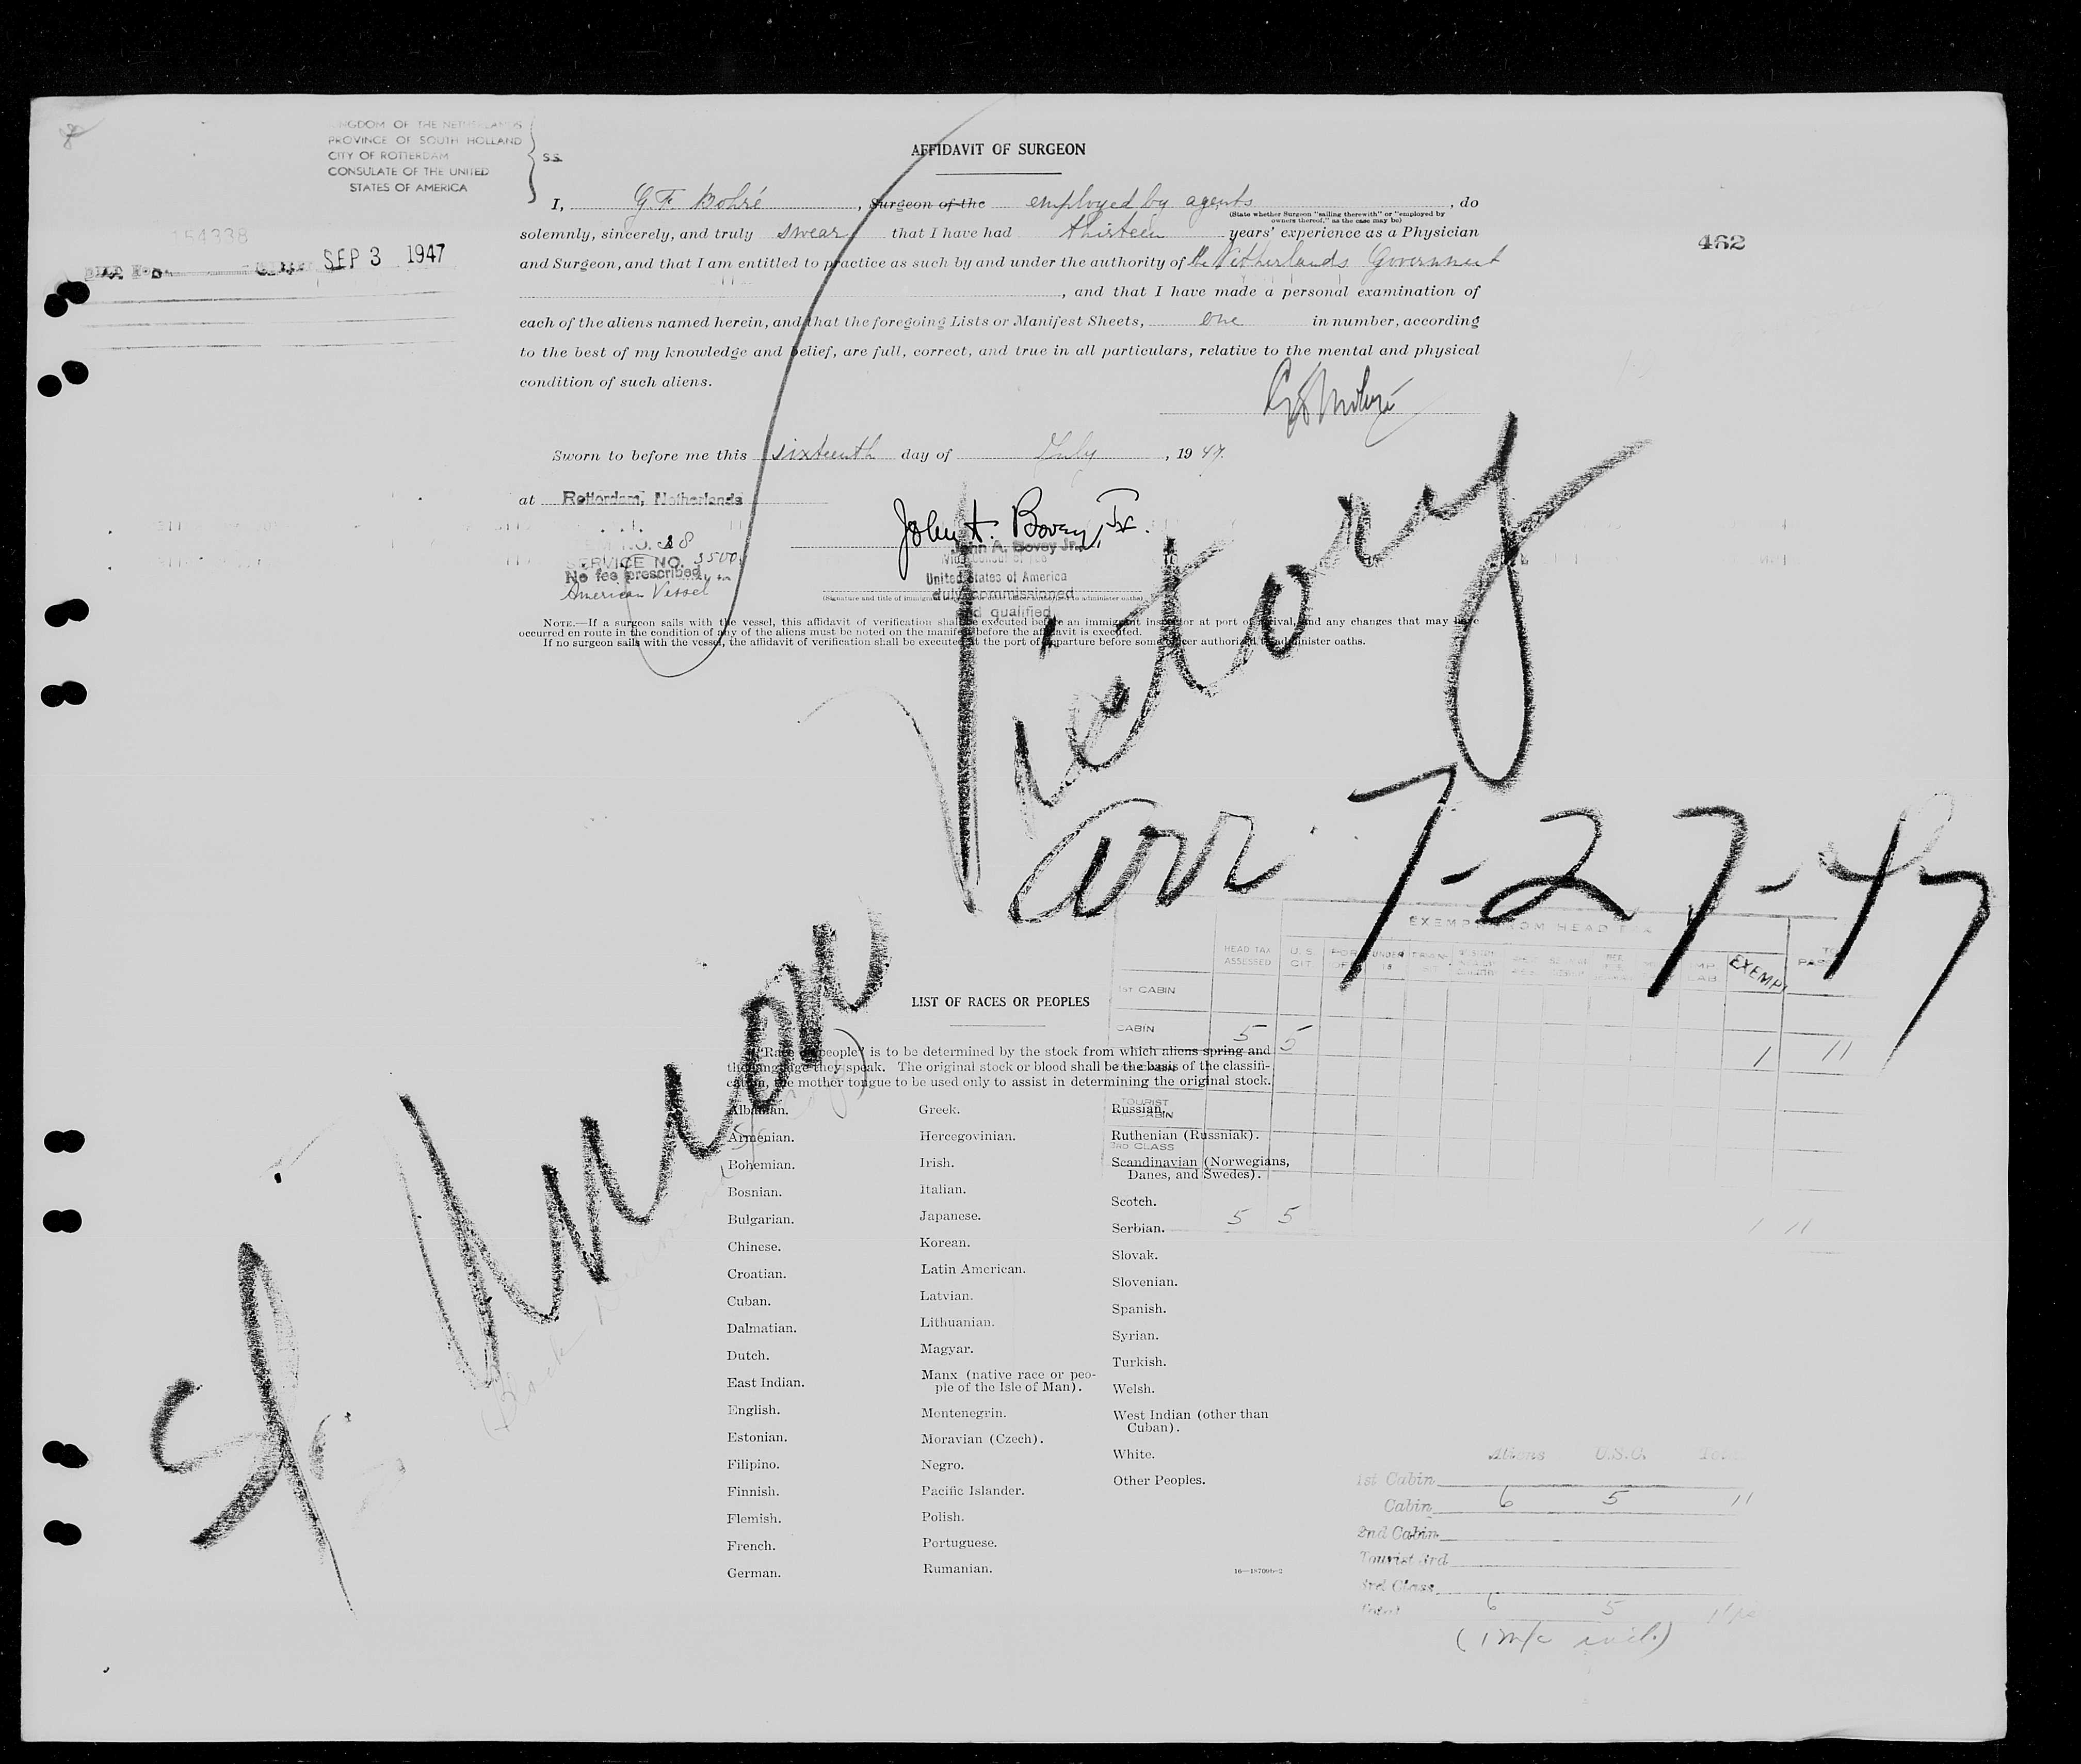 KINGDOM OF THE NETHERLANDS
PROVINCE OF SOUTH HOLLAND
CITY OF ROTTERDAM
CONSULATE OF THE UNITED
STATES OF AMERICA
SS.
154338
SEP 3 1947
462
AFFIDAVIT OF SURGEON
I, G.F. Mohré, Surgeon of the employed by agents, do
(State whether Surgeon "sailing therewith" or "employed by
owners thereof," as the case may be)
solemnly, sincerely, and truly swear that I have had thirteen years' experience as a Physician
and Surgeon, and that I am entitled to practice as such by and under the authority of the Netherlands Government
, and that I have made a personal examination of
each of the aliens named herein, and that the foregoing Lists or Manifest Sheets, one in number, according
to the best of my knowledge and belief, are full, correct, and true in all particulars, relative to the mental and physical
condition of such aliens.
Sworn to before me this sixteenth day of July, 1947.
at Rotterdam, Netherlands
John A. Bovey, Jr.
John A. Bovey Jr.
United States of America
duly commissioned
and qualified
SERVICE NO. 3500
No fee prescribed
American Vessel
NOTE.—If a surgeon sails with the vessel, this affidavit of verification shall be executed before an immigrant inspector at port of arrival, and any changes that may have
occurred en route in the condition of any of the aliens must be noted on the manifest before the affidavit is executed.
If no surgeon sails with the vessel, the affidavit of verification shall be executed at the port of departure before some officer authorized to administer oaths.
Union Victory
arr 7-27-47
EXEMPT FROM HEAD TAX
HEAD TAX ASSESSED
U.S. CIT.
UNDER 16
EXEMP
1ST CABIN
CABIN 5 5 1 11
TOURIST CABIN
3RD CLASS
5 5 1 11
LIST OF RACES OR PEOPLES
"Race or people" is to be determined by the stock from which aliens spring and
the language they speak. The original stock or blood shall be the basis of the classifi-
cation, the mother tongue to be used only to assist in determining the original stock.
Albanian.
Armenian.
Bohemian.
Bosnian.
Bulgarian.
Chinese.
Croatian.
Cuban.
Dalmatian.
Dutch.
East Indian.
English.
Estonian.
Filipino.
Finnish.
Flemish.
French.
German.
Greek.
Hercegovinian.
Irish.
Italian.
Japanese.
Korean.
Latin American.
Latvian.
Lithuanian.
Magyar.
Manx (native race or peo-
ple of the Isle of Man).
Montenegrin.
Moravian (Czech).
Negro.
Pacific Islander.
Polish.
Portuguese.
Rumanian.
Russian.
Ruthenian (Russniak).
Scandinavian (Norwegians,
Danes, and Swedes).
Scotch.
Serbian.
Slovak.
Slovenian.
Spanish.
Syrian.
Turkish.
Welsh.
West Indian (other than
Cuban).
White.
Other Peoples.
Aliens U.S.C. Total
1st Cabin
Cabin 6 5 11
2nd Cabin
Tourist 3rd
3rd Class
Total 6 5 11